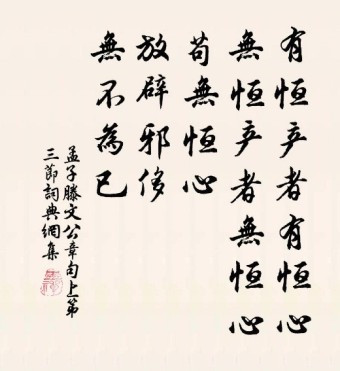 有恒产者有恒心
無恒产者無恒心
苟無恒心
放辟邪侈
無不為已
孟子滕文公章句上第
三節詞典網集